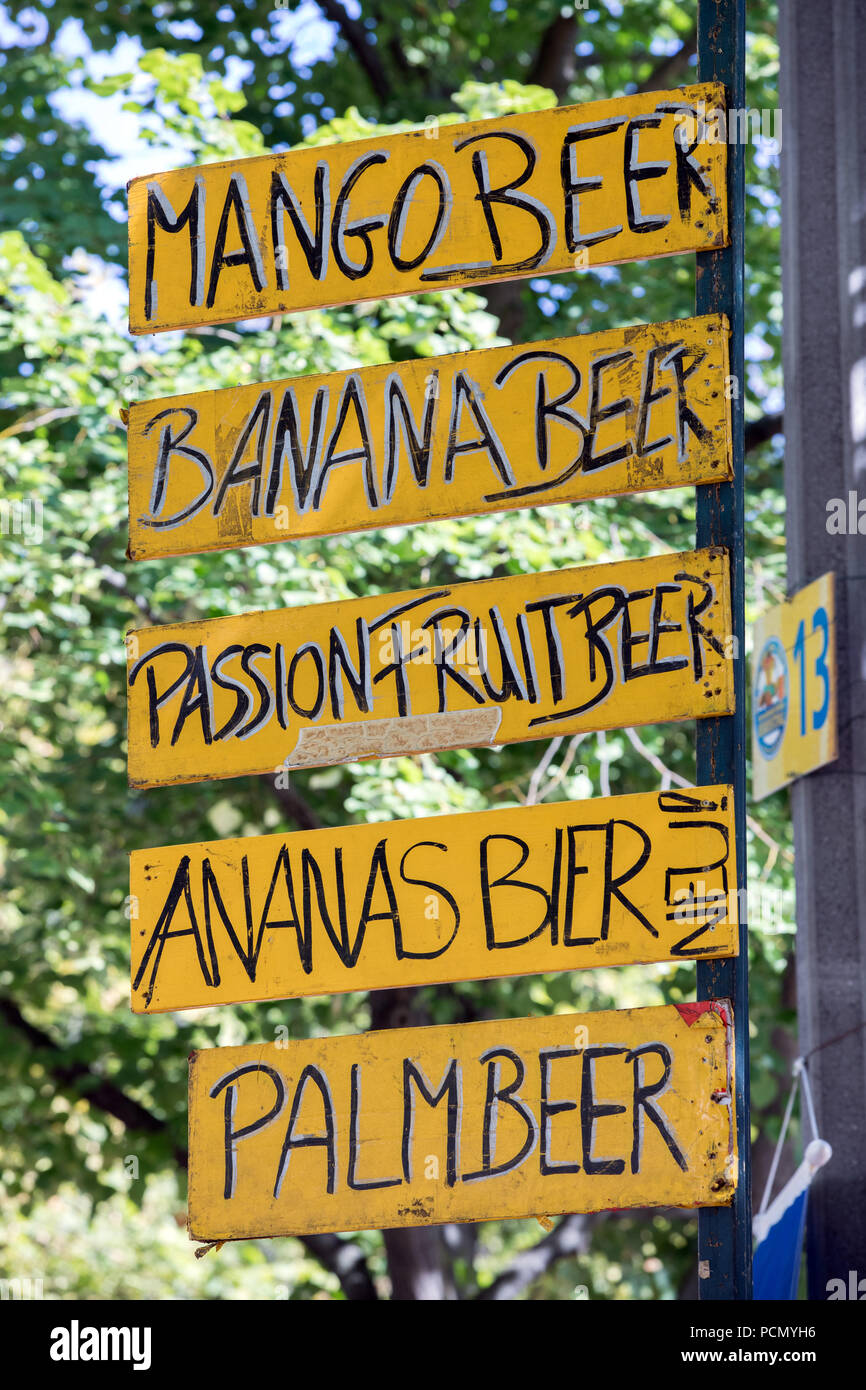 MANGO BEER
BANANA BEER
PASSION FRUIT BEER
ANANAS BIER NEU!
PALM BEER
13
alamy
Image ID: PCMYH6
www.alamy.com